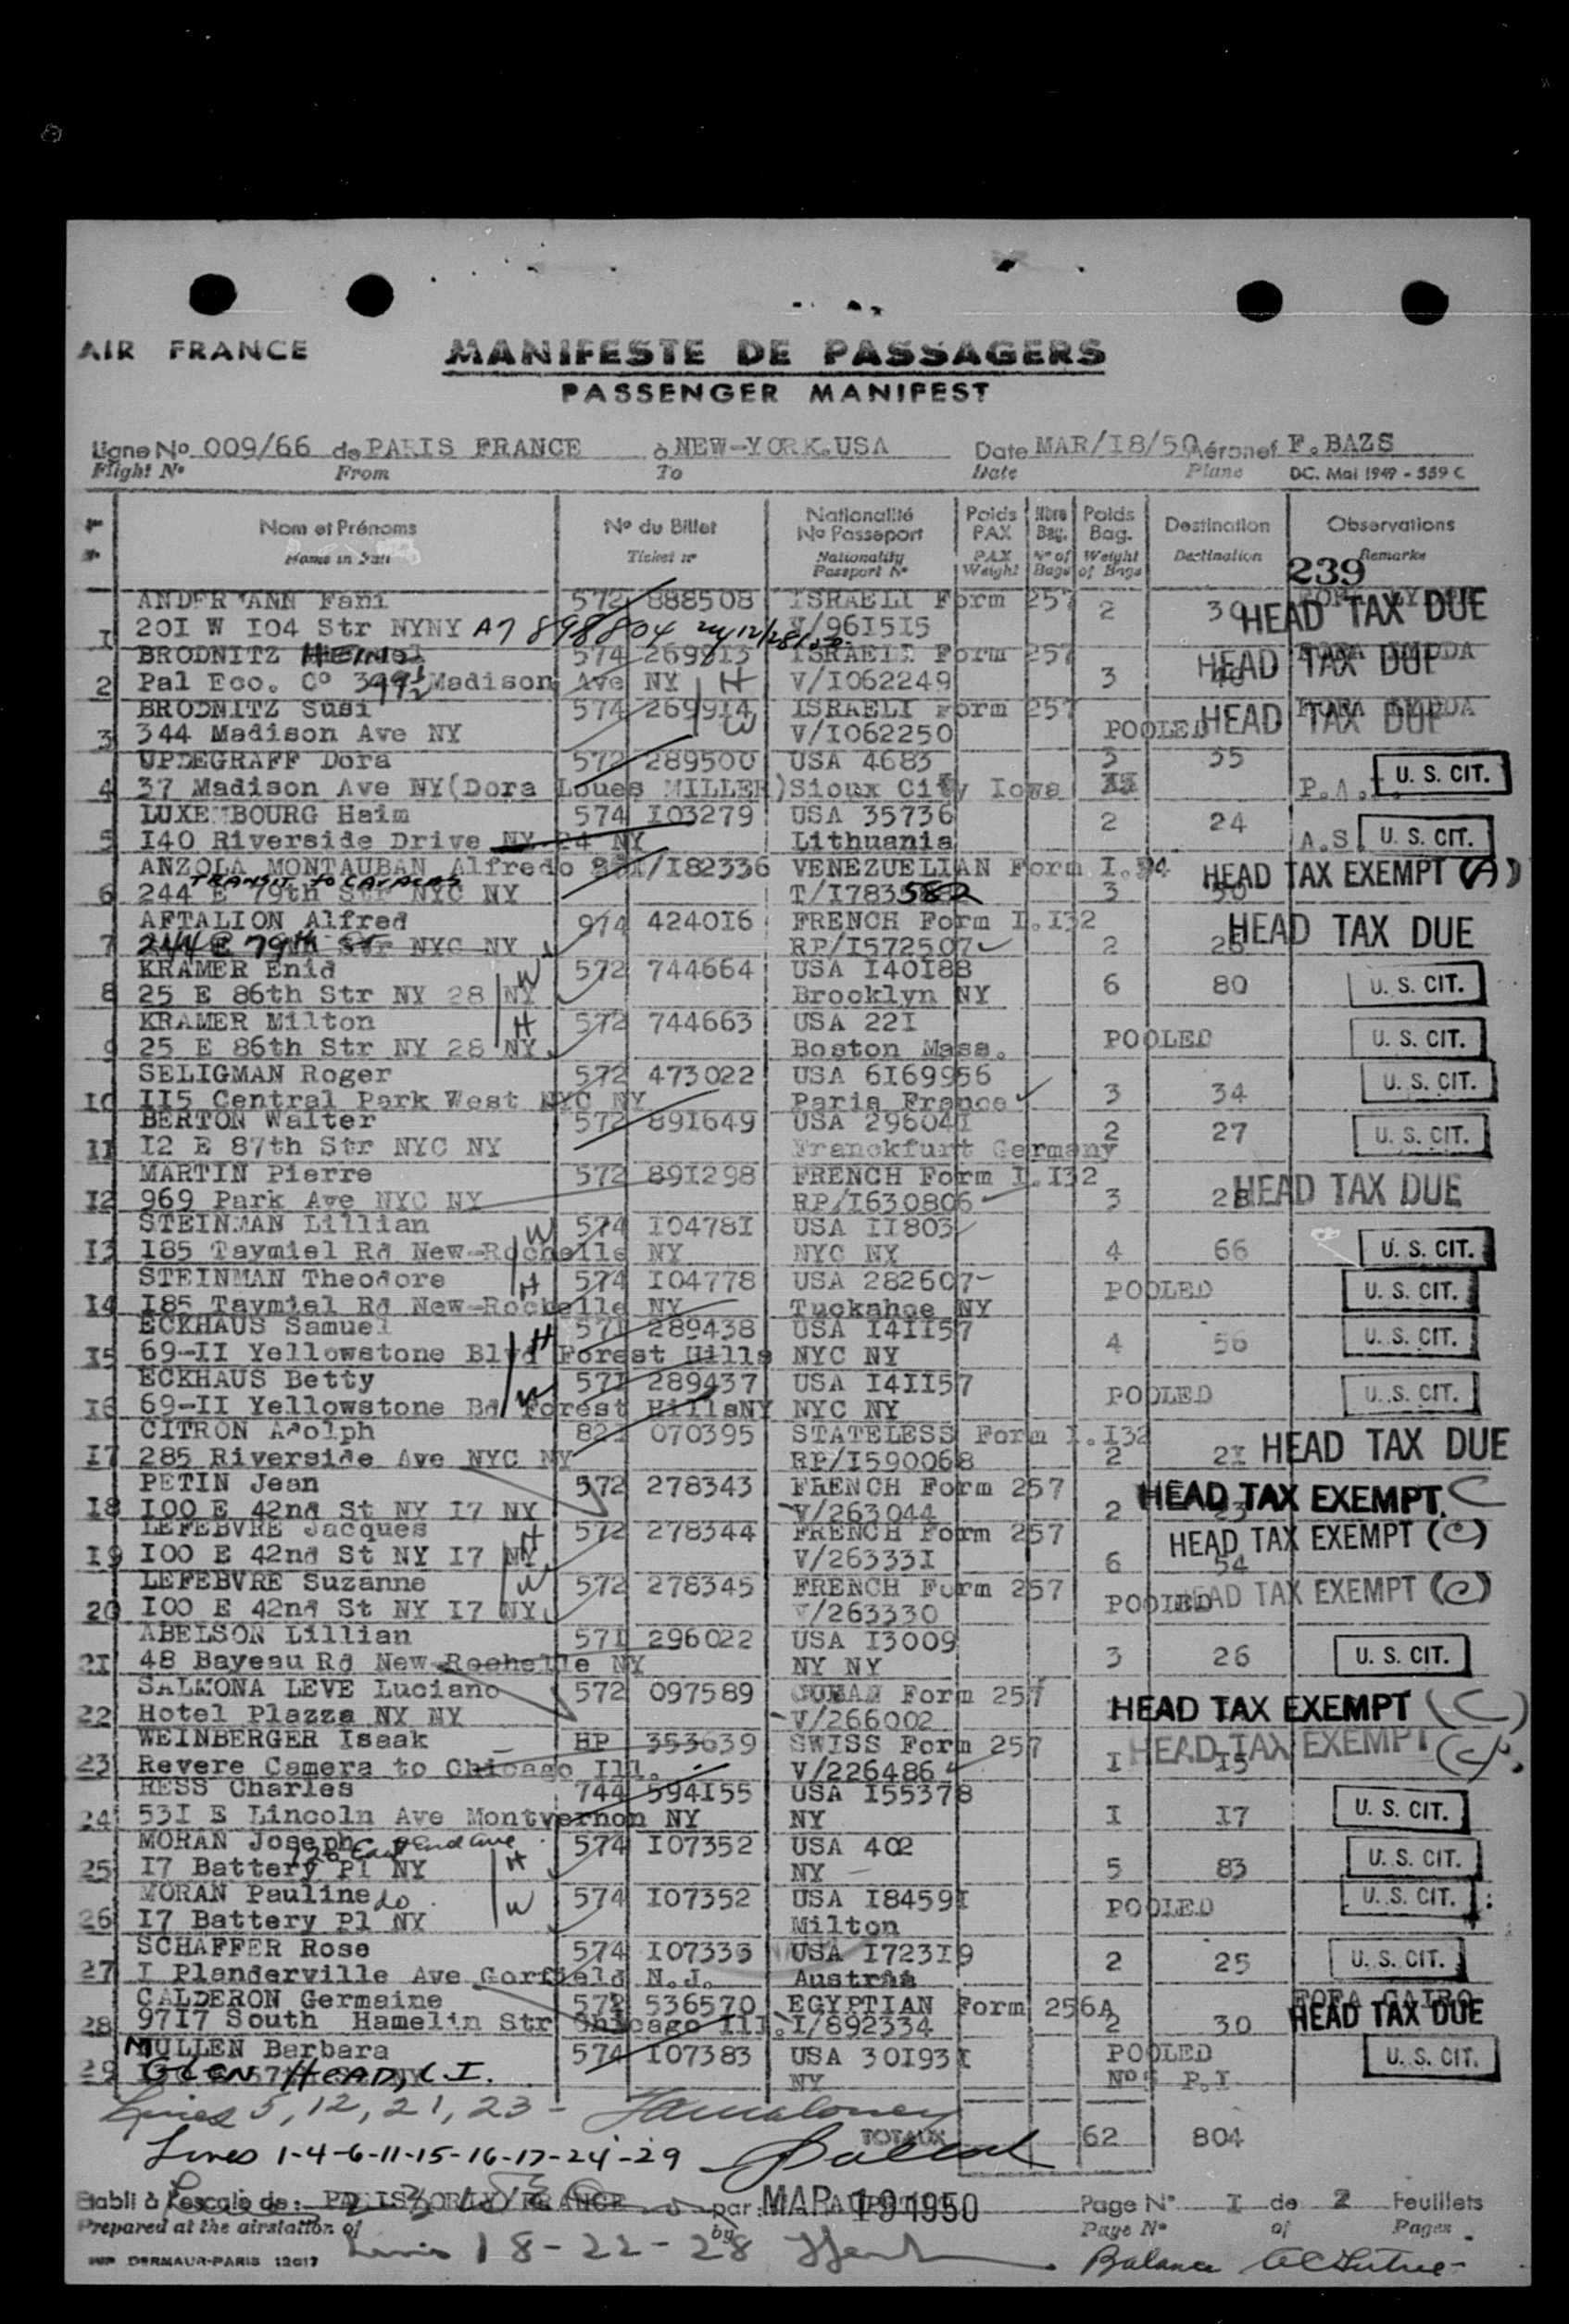 AIR FRANCE
MANIFESTE DE PASSAGERS
PASSENGER MANIFEST
Ligne No 009/66 de PARIS FRANCE à NEW-YORK.USA Date MAR/I8/50 Aéronef F.BAZS
Flight No From To Date Plane DC. Mai 1949 - 559 C
Nom et Prénoms No du Billet Nationalité No Passeport Poids PAX Nbre Bag. Poids Bag. Destination Observations
Name in Full Ticket no Nationality Passport No PAX Weight No of Bags Weight of Bags Destination Remarks
239
ANDERMANN Fani 572 888508 ISRAELI Form 257 2 30 HEAD TAX DUE
I 20I W I04 Str NYNY A7 898804 V/96I5I5
BRODNITZ 574 2699I3 ISRAELI Form 257 HEAD TAX DUE
2 Pal Eco. Co Madison Ave NY H V/I062249 3 40
BRODNITZ Susi 574 2699I4 ISRAELI Form 257 HEAD TAX DUE
3 344 Madison Ave NY W V/I062250 POOLED
UPDEGRAFF Dora 572 289500 USA 4683 3 35
4 37 Madison Ave NY(Dora Loues MILLER) Sioux City Iowa U. S. CIT.
LUXEMBOURG Haim 574 I03279 USA 35736 2 24
5 I40 Riverside Drive NY 24 NY Lithuania A.S. U. S. CIT.
ANZOLA MONTAUBAN Alfredo /I82336 VENEZUELIAN Form I.94 HEAD TAX EXEMPT (A)
TRANSIT to CARACAS
6 244 E 79th Str NYC NY T/I783582 3 30
AFTALION Alfred 974 4240I6 FRENCH Form I.I32 HEAD TAX DUE
7 244 E 79th St NYC NY RP/I572507 2 26
KRAMER Enid W 572 744664 USA I40I88
8 25 E 86th Str NY 28 NY Brooklyn NY 6 80 U. S. CIT.
KRAMER Milton H 572 744663 USA 22I
9 25 E 86th Str NY 28 NY Boston Mass. POOLED U. S. CIT.
SELIGMAN Roger 572 473022 USA 6I69956 U. S. CIT.
I0 II5 Central Park West NYC NY Paris France 3 34
BERTON Walter 572 89I649 USA 29604I 2 27
II I2 E 87th Str NYC NY Franckfurt Germany U. S. CIT.
MARTIN Pierre 572 89I298 FRENCH Form I.I32
I2 969 Park Ave NYC NY RP/I630806 3 28 HEAD TAX DUE
STEINMAN Lillian W 574 I0478I USA II803
I3 I85 Taymiel Rd New-Rochelle NY NYC NY 4 66 U. S. CIT.
STEINMAN Theodore H 574 I04778 USA 282607
I4 I85 Taymiel Rd New-Rochelle NY Tuckahoe NY POOLED U. S. CIT.
ECKHAUS Samuel H 57I 289438 USA I4II57
I5 69-II Yellowstone Blvd Forest Hills NYC NY 4 56 U. S. CIT.
ECKHAUS Betty W 57I 289437 USA I4II57
I6 69-II Yellowstone Bd Forest HillsNY NYC NY POOLED U. S. CIT.
CITRON Adolph 82I 070395 STATELESS Form I.I32
I7 285 Riverside Ave NYC NY RP/I590068 2 2I HEAD TAX DUE
PETIN Jean 572 278343 FRENCH Form 257
I8 I00 E 42nd St NY I7 NY V/263044 2 23 HEAD TAX EXEMPT. C
LEFEBVRE Jacques H 572 278344 FRENCH Form 257 HEAD TAX EXEMPT (C)
I9 I00 E 42nd St NY I7 NY V/26333I 6 54
LEFEBVRE Suzanne W 572 278345 FRENCH Form 257
20 I00 E 42nd St NY I7 NY V/263330 POOLED HEAD TAX EXEMPT (C)
ABELSON Lillian 57I 296022 USA I3009
2I 48 Bayeau Rd New-Rochelle NY NY NY 3 26 U. S. CIT.
SALMONA LEVE Luciano 572 097589 CUBAN Form 257
22 Hotel Plazza NY NY V/266002 HEAD TAX EXEMPT (C)
WEINBERGER Isaak HP 353639 SWISS Form 257
23 Revere Camera to Chicago Ill. V/226486 I I5 HEAD TAX EXEMPT (C)
HESS Charles 744 594I55 USA I55378
24 53I E Lincoln Ave Montvernon NY NY I I7 U. S. CIT.
MORAN Joseph 574 I07352 USA 402
East End Ave
25 I7 Battery Pl NY H NY 5 83 U. S. CIT.
MORAN Pauline do W 574 I07352 USA I8459I
26 I7 Battery Pl NY Milton POOLED U. S. CIT.
SCHAFFER Rose 574 I07335 USA I723I9
27 I Planderville Ave Garfield N.J. Austraa 2 25 U. S. CIT.
CALDERON Germaine 572 536570 EGYPTIAN Form 256A CAIRO
28 97I7 South Hamelin Str Chicago Ill. I/892334 2 30 HEAD TAX DUE
MULLEN Barbara 574 I07383 USA 30I93I POOLED U. S. CIT.
29 GLEN HEAD, L.I. NY No5 P.I
Lines 5, 12, 21, 23 -
TOTAUX 62 804
Lines 1-4-6-11-15-16-17-24-29
Etabli à l'escale de: PARIS/ORLY/FRANCE par MAR 19 1950 Page No I de 2 Feuillets
Prepared at the airstation of by Page No of Pages
Lines 18-22-28
IMP DERMAUR-PARIS 12017 Balance